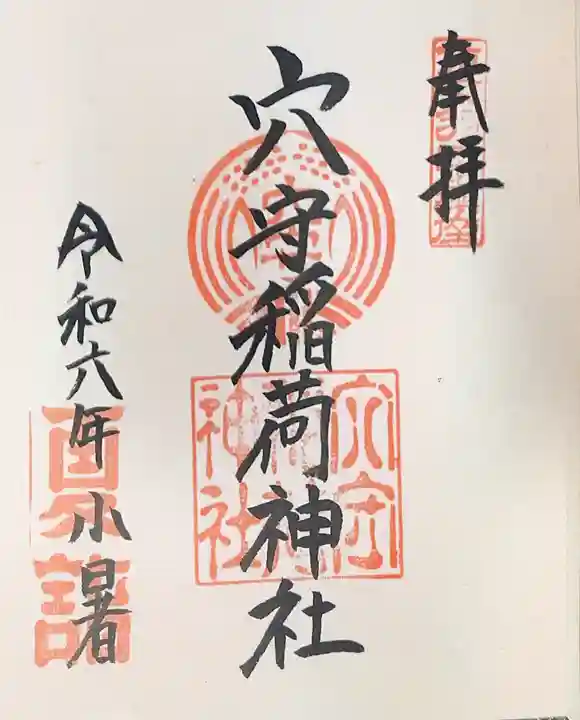 奉拝
穴守稲荷神社
令和六年小暑
夏詣
穴守
稲荷
神社